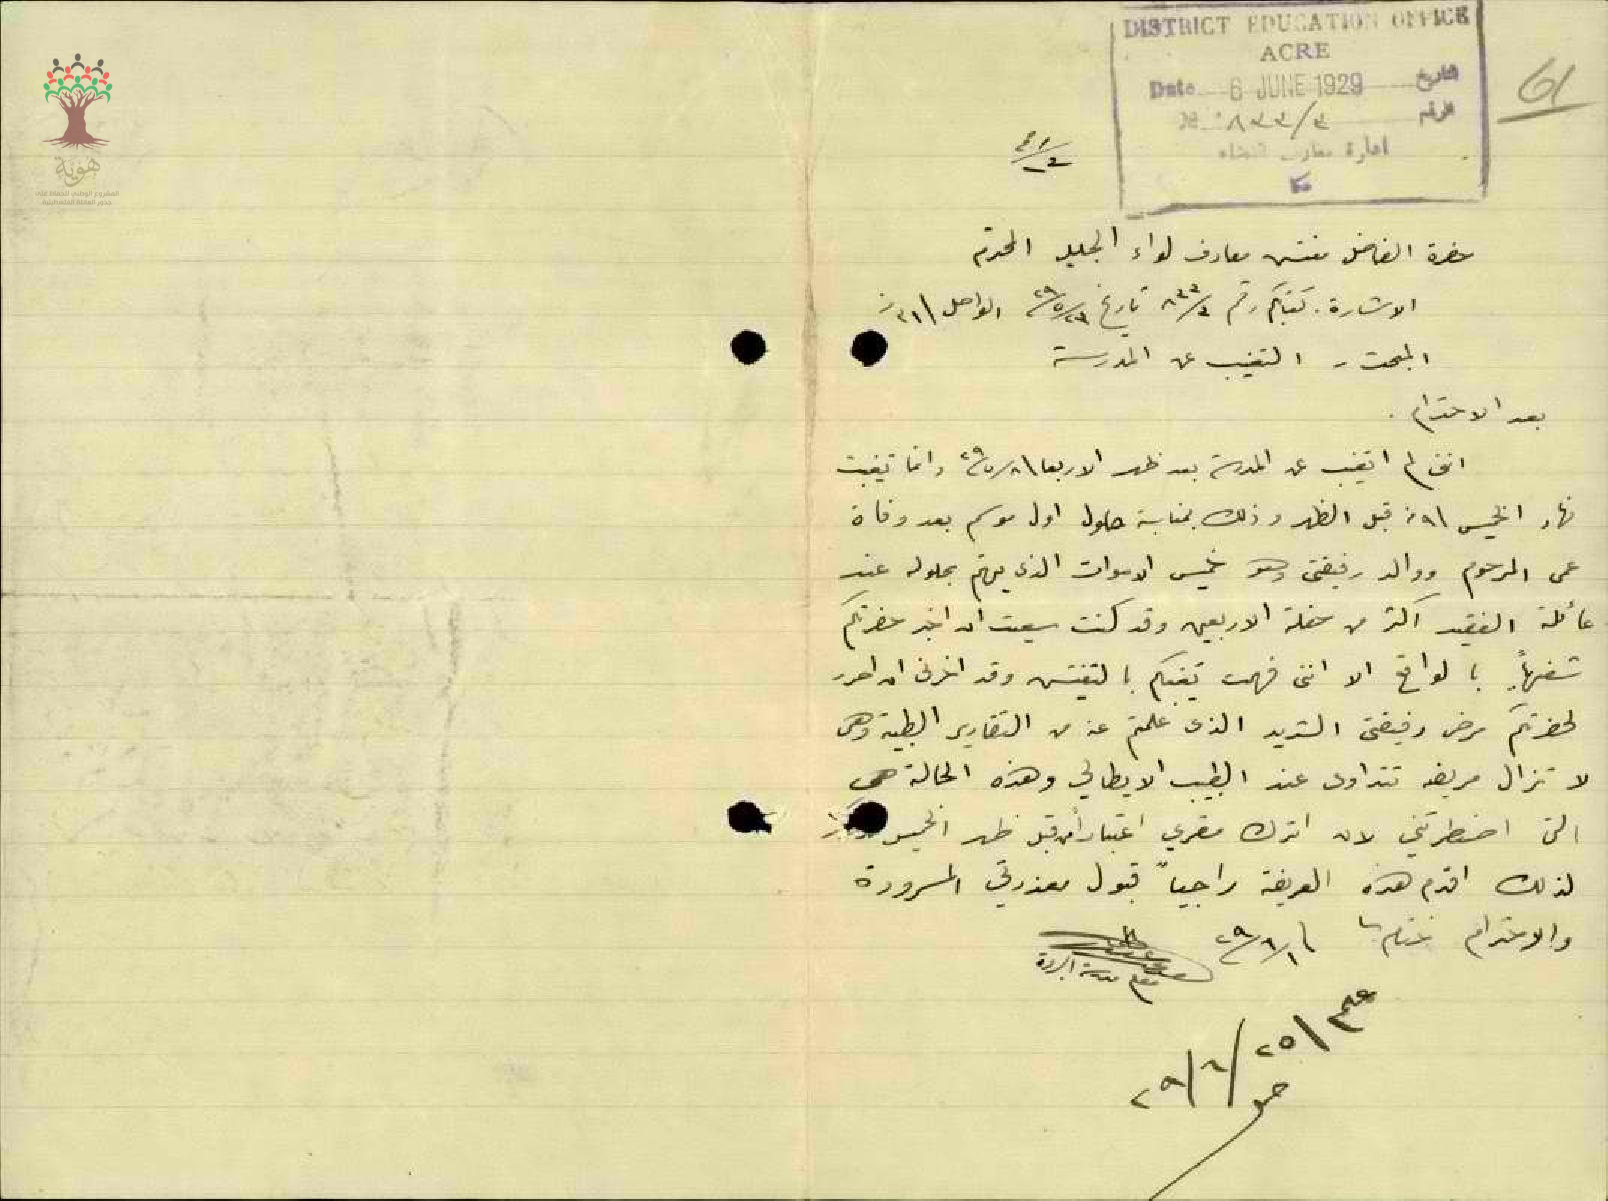 DISTRICT EDUCATION OFFICE
ACRE
Date 6 JUNE 1929 التاريخ
№ ٨٣٣/٣ الرقم
ادارة معارف قضاء
عكا
61
هوية
المشروع الوطني للحفاظ على
جذور العائلة الفلسطينية
حضرة الفاضل مفتش معارف لواء الجليل المحترم
الاشارة. كتابكم رقم ٨٣٣/٤ تاريخ ٢٣/٥/٢٩ الواصل ٣١ منه
المبحث - التغيب عن المدرسة
بعد الاحترام.
انني لم اتغيب عن المدرسة بعد ظهر الاربعا ٨/٥/٢٩ وانما تغيبت
نهار الخميس ٩ منه قبل الظهر وذلك بمناسبة حلول اول موسم بعد وفاة
عمي المرحوم ووالد رفيقتي وهو خميس الاموات الذي يهتم بحلوله عند
عائلة الفقيد اكثر من حفلة الاربعين وقد كنت سعيت ان اخبر حضرتكم
شفهياً بالواقع الا انني فهمت تغيبكم بالتفتيش وقد اخرني ان احرر
لحضرتكم مرض رفيقتي الشديد الذي علمتم عنه من التقارير الطبية وهي
لا تزال مريضة تتداوى عند الطبيب الايطالي وهذه الحالة هي
التي اضطرتني لان اترك مقري اعتباراً من قبل ظهر الخميس
لذلك اقدم هذه العريضة راجياً قبول معذرتي المسرودة
والاحترام ختام ١/٦/٢٩
معلم مدرسة البروة
٢٥/٦/٢٩